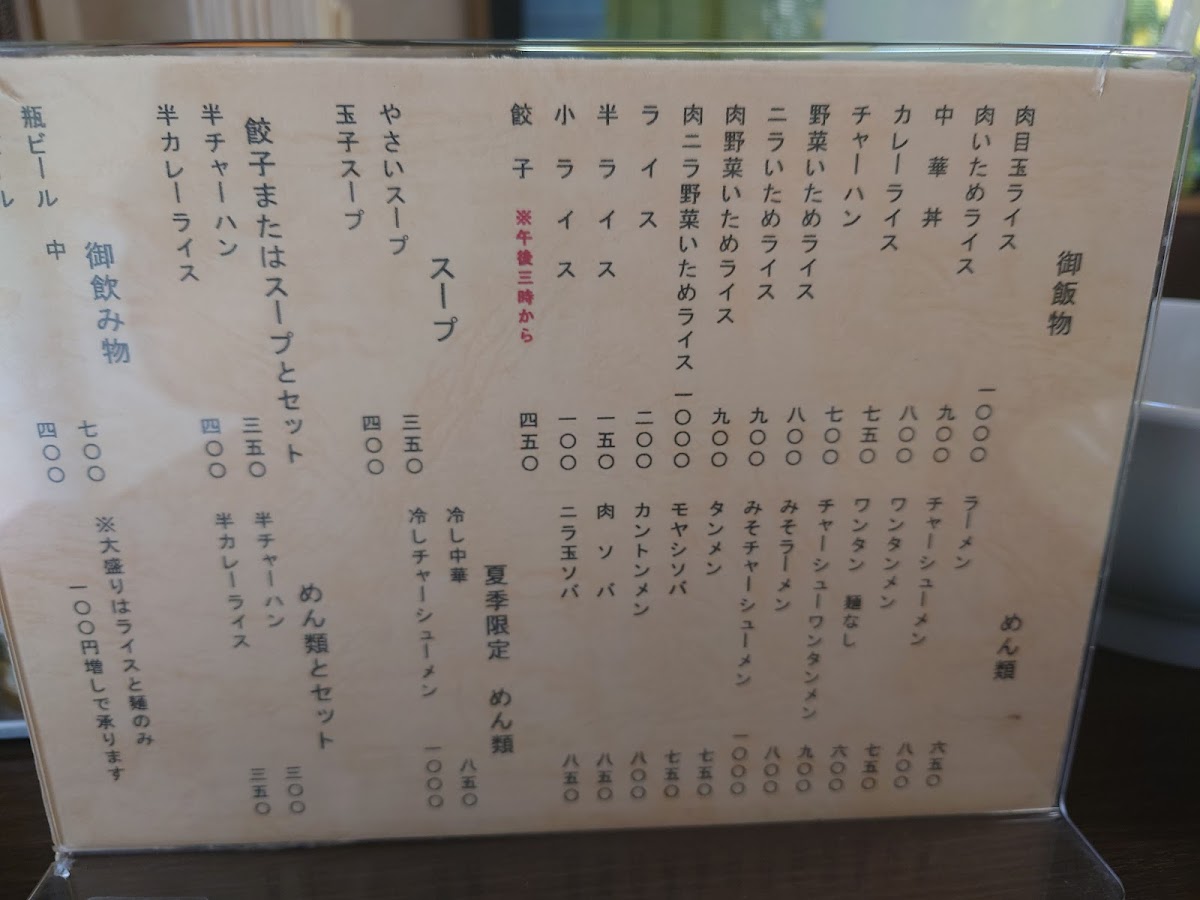 御飯物
肉目玉ライス 一〇〇〇
肉いためライス 九〇〇
中華丼 八〇〇
カレーライス 七五〇
チャーハン 七〇〇
野菜いためライス 八〇〇
ニラいためライス 九〇〇
肉野菜いためライス 九〇〇
肉ニラ野菜いためライス 一〇〇〇
ライス 二〇〇
半ライス 一五〇
小ライス 一〇〇
餃子 ※午後三時から 四五〇
スープ
やさいスープ 三五〇
玉子スープ 四〇〇
餃子またはスープとセット
半チャーハン 三五〇
半カレーライス 四〇〇
御飲み物
瓶ビール 中 七〇〇
四〇〇
めん類
ラーメン 六五〇
チャーシューメン 八〇〇
ワンタンメン 七五〇
ワンタン 麺なし 六〇〇
チャーシューワンタンメン 九〇〇
みそラーメン 八〇〇
みそチャーシューメン 一〇〇〇
タンメン 七五〇
モヤシソバ 七五〇
カントンメン 八〇〇
肉ソバ 八五〇
ニラ玉ソバ 八五〇
夏季限定 めん類
冷し中華 八五〇
冷しチャーシューメン 一〇〇〇
めん類とセット
半チャーハン 三〇〇
半カレーライス 三五〇
※大盛りはライスと麺のみ
一〇〇円増しで承ります